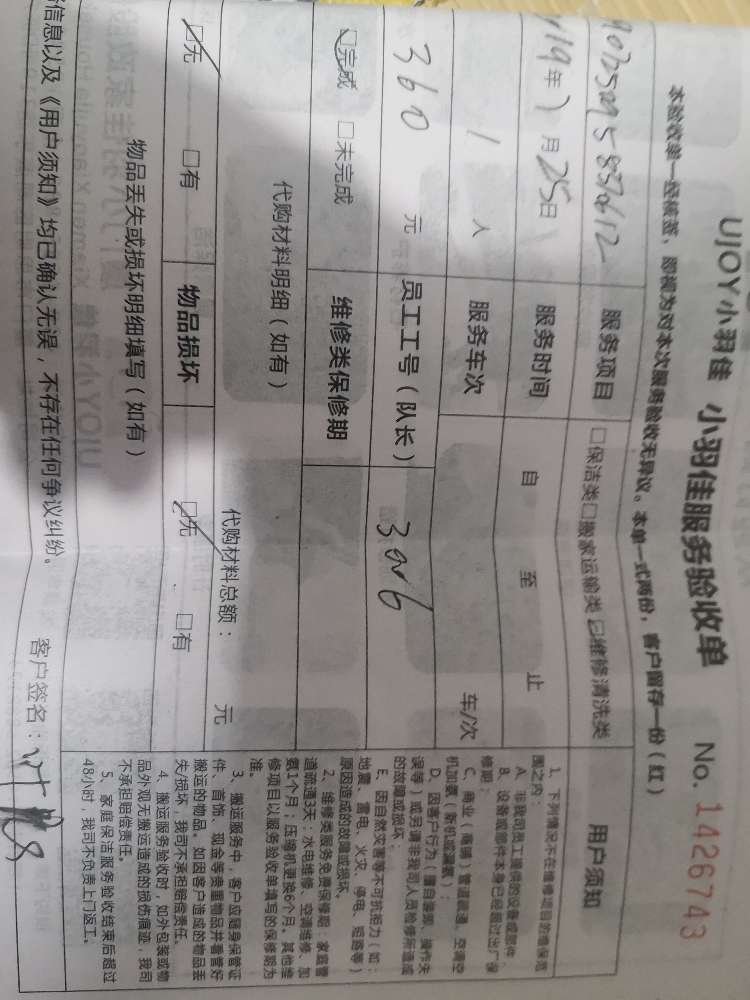 UJOY小羽佳 小羽佳服务验收单 No. 1426743
本验收单一经核签，即视为对本次服务验收无异议。本单一式两份，客户留存一份（红）
服务项目 □保洁类□搬家运输类☑维修清洗类
19年 月25日 服务时间 自 至 止
1 人 服务车次 车/次
360 元 员工工号（队长）
☑完成 □未完成 维修类保修期
代购材料明细（如有） 代购材料总额： 元
☑无 □有 物品损坏 ☑无 □有
物品丢失或损坏明细填写（如有）
信息以及《用户须知》均已确认无误，不存在任何争议纠纷。
客户签名：
用户须知
1、下列情况不在维修项目的修保范
围之内：
A、非我司员工提供的设备或部件；
B、设备或部件本身已经超过出厂保
修期；
C、商业（商铺）管道疏通、空调空
机加氟（新机或漏氟）；
D、因客户行为（擅自拆卸、操作失
误等）或另请非我司人员检修所造成
的故障或损坏；
E、因自然灾害等不可抗拒力（如：
地震、雷电、火灾、停电、短路等）
原因造成的故障或损坏。
2、维修类服务免费保修期：家庭管
道疏通3天；水电维修、空调维修、加
氨1个月；压缩机更换6个月。其他维
修项目以服务验收单填写的保修期为
准。
3、搬运服务中，客户应随身保管证
件、首饰、现金等贵重物品并看管好
搬运的物品。如因客户造成的物品丢
失/损坏，我司不承担赔偿责任。
4、搬运服务验收时，如外包装或物
品外观无搬运造成的损伤痕迹，我司
不承担赔偿责任。
5、家庭保洁服务验收结束后超过
48小时，我司不负责上门返工。